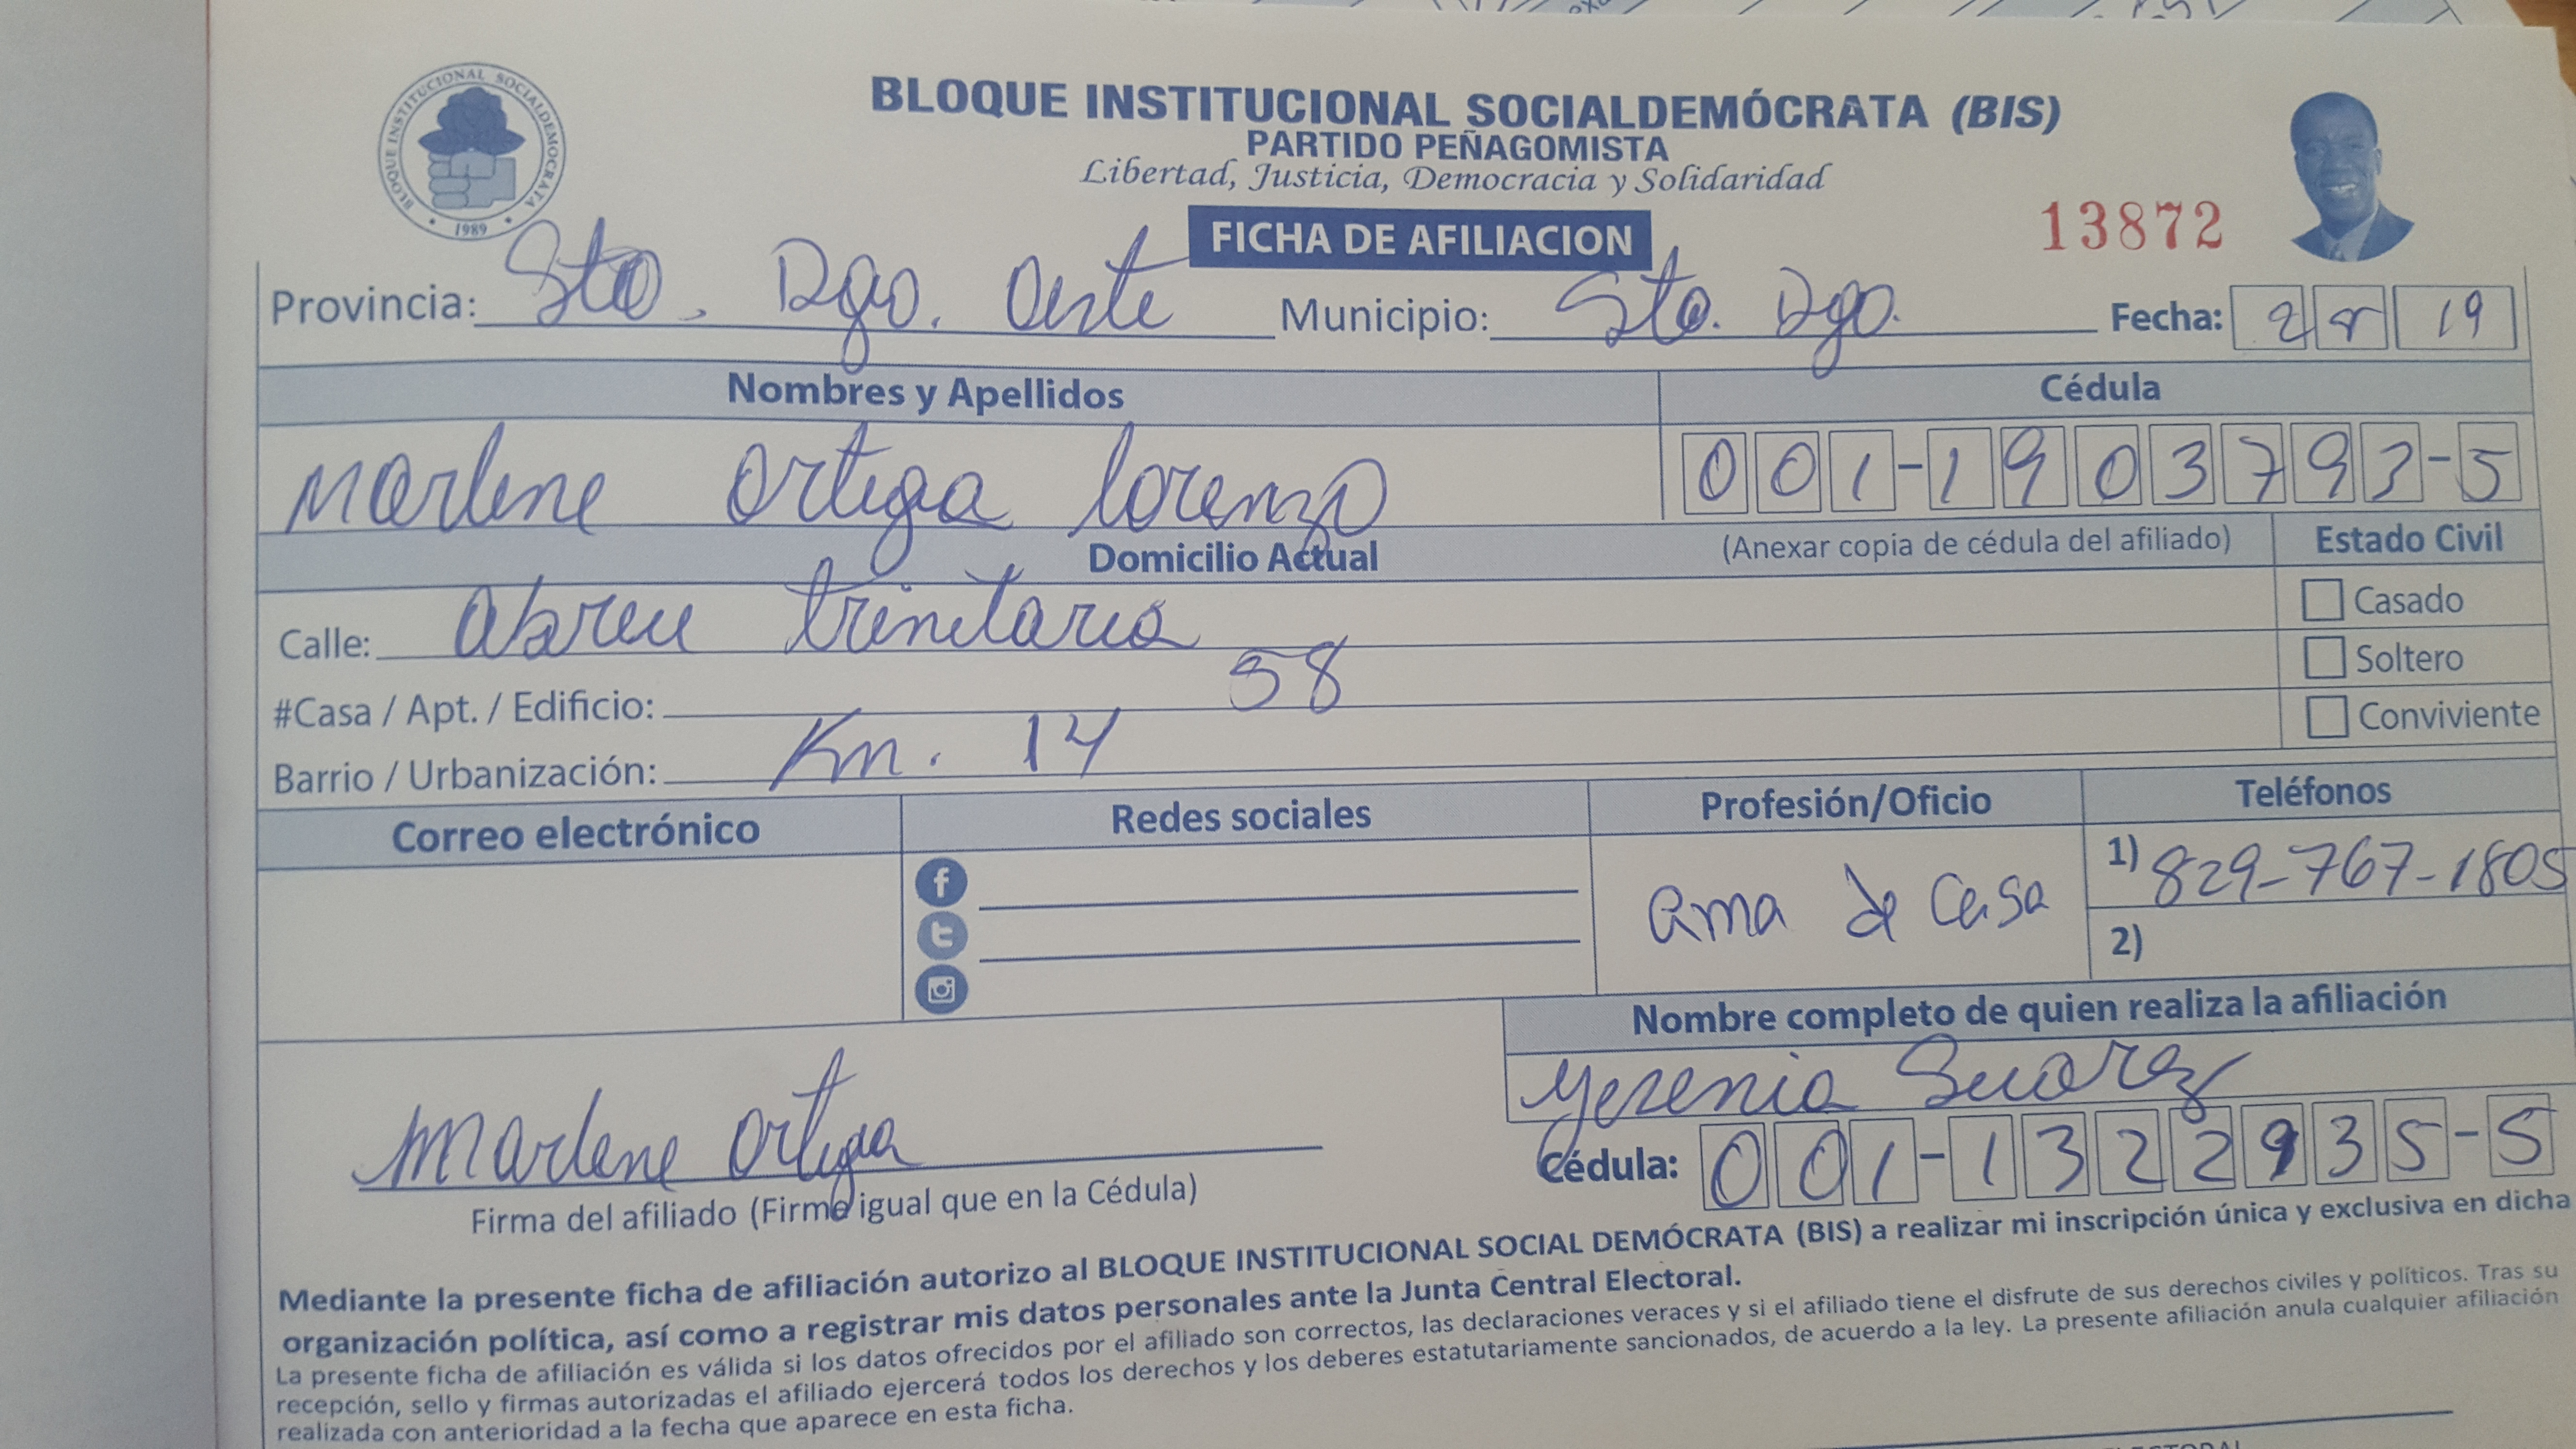 BLOQUE INSTITUCIONAL SOCIALDEMOCRATA
1989
BLOQUE INSTITUCIONAL SOCIALDEMÓCRATA (BIS)
PARTIDO PEÑAGOMISTA
Libertad, Justicia, Democracia y Solidaridad
FICHA DE AFILIACION
13872
Provincia: Sto. Dgo. Oeste Municipio: Sto. Dgo. Fecha: 2 8 19
Nombres y Apellidos Cédula
Marlene Ortega Lorenzo 001-1903793-5
Domicilio Actual (Anexar copia de cédula del afiliado) Estado Civil
Calle: Abreu trinitaria Casado
#Casa / Apt. / Edificio: 58 Soltero
Barrio / Urbanización: Km. 14 Conviviente
Correo electrónico Redes sociales Profesión/Oficio Teléfonos
ama de casa 1) 829-767-1805
2)
Nombre completo de quien realiza la afiliación
Yesenia Suarez
Marlene Ortega Cédula: 001-1322935-5
Firma del afiliado (Firme igual que en la Cédula)
Mediante la presente ficha de afiliación autorizo al BLOQUE INSTITUCIONAL SOCIAL DEMÓCRATA (BIS) a realizar mi inscripción única y exclusiva en dicha
organización política, así como a registrar mis datos personales ante la Junta Central Electoral.
La presente ficha de afiliación es válida si los datos ofrecidos por el afiliado son correctos, las declaraciones veraces y si el afiliado tiene el disfrute de sus derechos civiles y políticos. Tras su
recepción, sello y firmas autorizadas el afiliado ejercerá todos los derechos y los deberes estatutariamente sancionados, de acuerdo a la ley. La presente afiliación anula cualquier afiliación
realizada con anterioridad a la fecha que aparece en esta ficha.